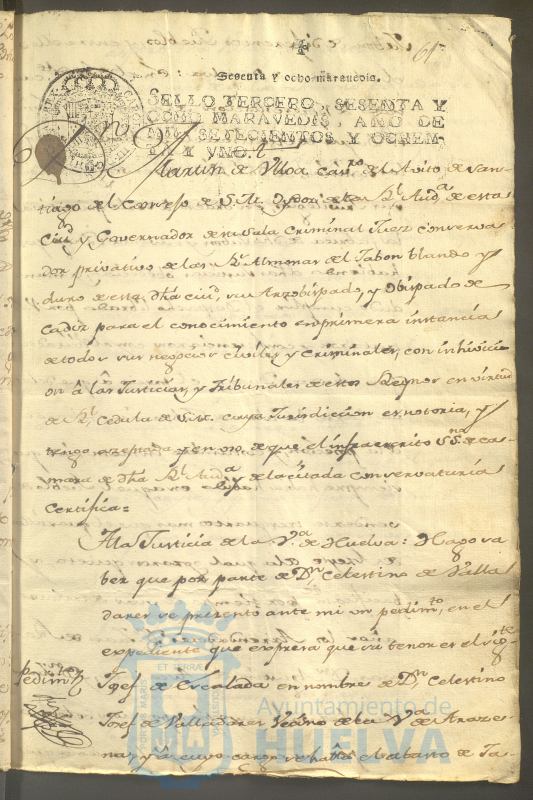 61
Sesenta y ocho mrauedis.
SELLO TERCERO, SESENTA Y
OCHO MARAVEDIS, AÑO DE
MIL SETECIENTOS Y OCHEN-
TA Y VNO.
Dn Martin de Ulloa Cavro del Avito de San-
tiago del Consejo de S. M. Oydor de la Rl Auda de esta
Ciud y Governador de su Sala Criminal Juez conserva
dor privativo de las Rs Almonas del Jabon blando y
duro de esta dha ciud, su Arzobispado, y Obispado de
Cadiz para el conocimiento en primera instancia
de todos sus negocios Civiles y Criminales, con inhivici
on â las Justicias, y Tribunales de estos Reynos en virtud
de Rl Cedula de S. M. cuya Jurisdiccion es notoria, y
tengo azeptada y en uso de que el infraescrito SSno de Ca-
mara de dha Rl Auda y de la citada conservaturia
Certifica=
A la Justicia de la Va de Huelva: Hago sa
ber que por parte de Dn Celestino de Valla
dares se presento ante mi un pedimto en el
expediente que expresa que su tenor es el sigte
pedimto
Josef de Escalada en nombre de Dn Celestino
Josef de Valladares Vecino de la Va de Araze-
na, y â cuyo cargo se halla el abasto de Ja
Ayuntamiento de
HUELVA
ET TERRÆ
PORTUS MARIS
CUSTODIA